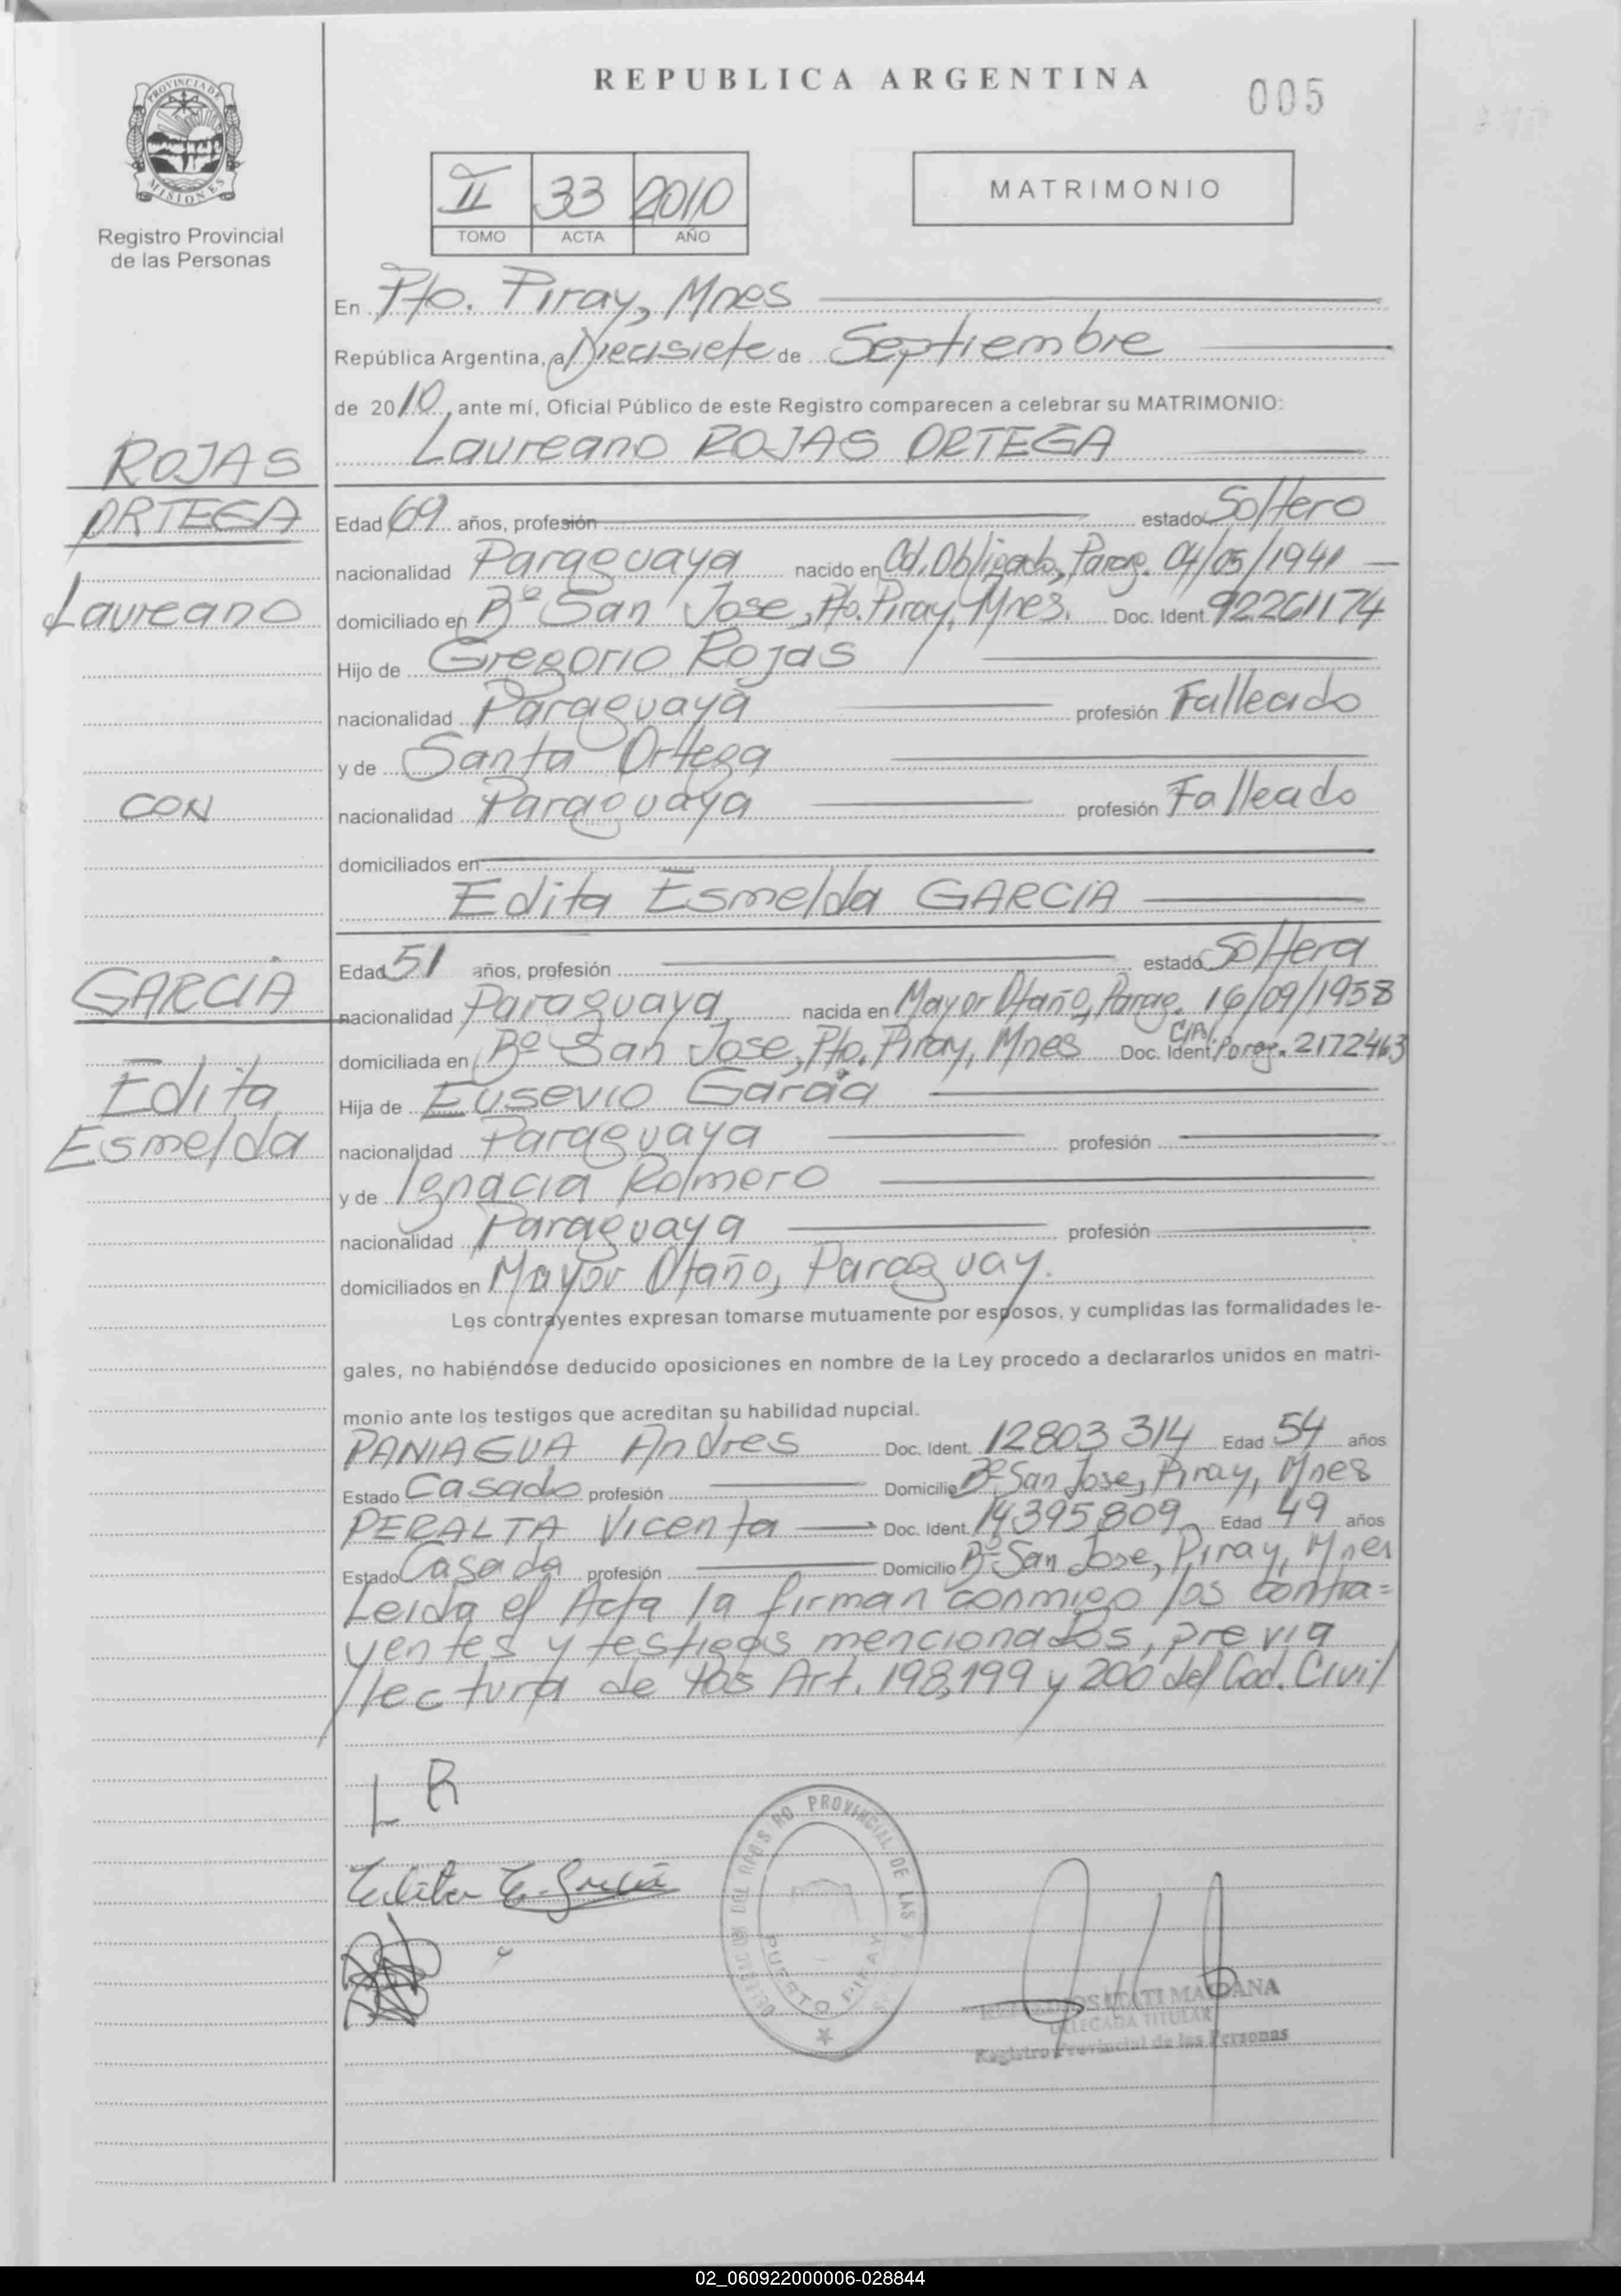 REPUBLICA ARGENTINA
005
PROVINCIA DE
MISIONES
Registro Provincial
de las Personas
II 33 2010
TOMO ACTA AÑO
MATRIMONIO
En Pto. Piray, Mnes
República Argentina, a Diecisiete de Septiembre
de 2010, ante mí, Oficial Público de este Registro comparecen a celebrar su MATRIMONIO:
Laureano ROJAS ORTEGA
ROJAS
ORTEGA
Laureano
CON
GARCIA
Edita
Esmelda
Edad 69 años, profesión estado Soltero
nacionalidad Paraguaya nacido en Cd. Obligado, Parag. 04/05/1941
domiciliado en Bº San Jose, Pto. Piray, Mnes. Doc. Ident. 92261174
Hijo de Gregorio Rojas
nacionalidad Paraguaya profesión Fallecido
y de Santa Ortega
nacionalidad Paraguaya profesión Fallecido
domiciliados en
Edita Esmelda GARCIA
Edad 51 años, profesión estado Soltera
nacionalidad Paraguaya nacida en Mayor Otaño, Parag. 16/09/1958
domiciliada en Bº San Jose, Pto. Piray, Mnes Doc. Ident. Parag. 2172463
Hija de Eusevio Garcia
nacionalidad Paraguaya profesión
y de Ignacia Rolmero
nacionalidad Paraguaya profesión
domiciliados en Mayor Otaño, Paraguay.
Los contrayentes expresan tomarse mutuamente por esposos, y cumplidas las formalidades le-
gales, no habiéndose deducido oposiciones en nombre de la Ley procedo a declararlos unidos en matri-
monio ante los testigos que acreditan su habilidad nupcial.
PANIAGUA Andres Doc. Ident. 12803314 Edad 54 años
Estado Casado profesión Domicilio Bº San Jose, Piray, Mnes
PERALTA Vicenta Doc. Ident. 14395809 Edad 49 años
Estado Casada profesión Domicilio Bº San Jose, Piray, Mnes
Leida el Acta la firman conmigo los contra=
yentes y testigos mencionados, previa
lectura de los Art. 198,199 y 200 del Cod. Civil
L R
Edita E. Garcia
PROVINCIAL DE LAS
PUERTO PIRAY
DELEGADA TITULAR
Registro Provincial de las Personas
02_060922000006-028844